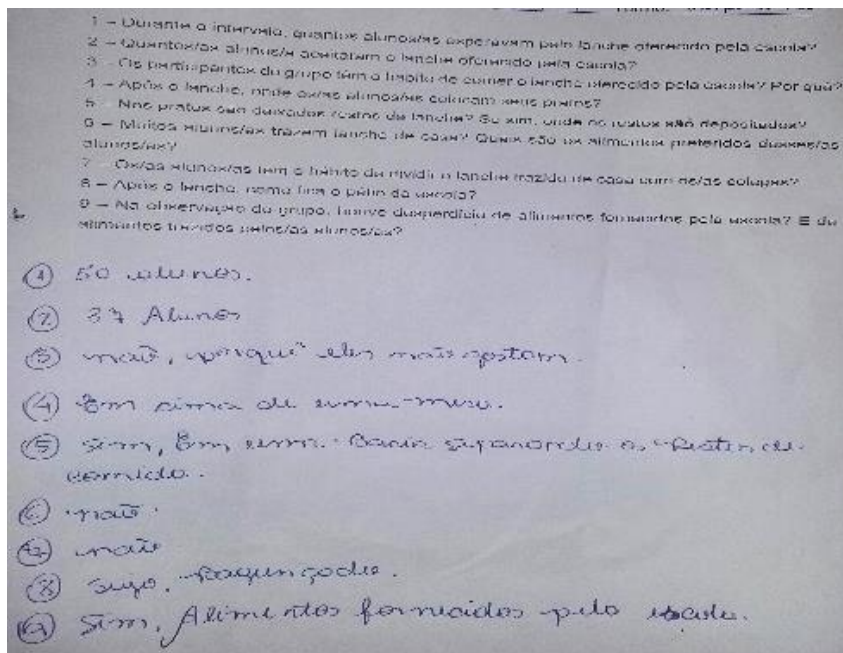 1 – Durante o intervalo, quantos alunos/as esperavam pelo lanche oferecido pela escola?
2 – Quantos/as alunos/a aceitaram o lanche oferecido pela escola?
3 – Os participantes do grupo têm o hábito de comer o lanche oferecido pela escola? Por quê?
4 – Após o lanche, onde os/as alunos/as colocam seus pratos?
5 – Nos pratos são deixados restos de lanche? Se sim, onde os restos são depositados?
6 – Muitos alunos/as trazem lanche de casa? Quais são os alimentos preferidos desses/as
alunos/as?
7 – Os/as alunos/as tem o hábito de dividir o lanche trazido de casa com os/as colegas?
8 – Após o lanche, como fica o pátio da escola?
9 – Na observação do grupo, houve desperdício de alimentos fornecidos pela escola? E de
alimentos trazidos pelos/as alunos/as?
1 50 alunos.
2 37 Alunos
3 não, porquê eles não gostam.
4 Em sima de uma mesa.
5 sim, Em uma Bacia separando os Restos de
comida.
6 não.
7 não
8 sujo, Bagunçado.
9 Sim, Alimentos fornecidos pela escola.